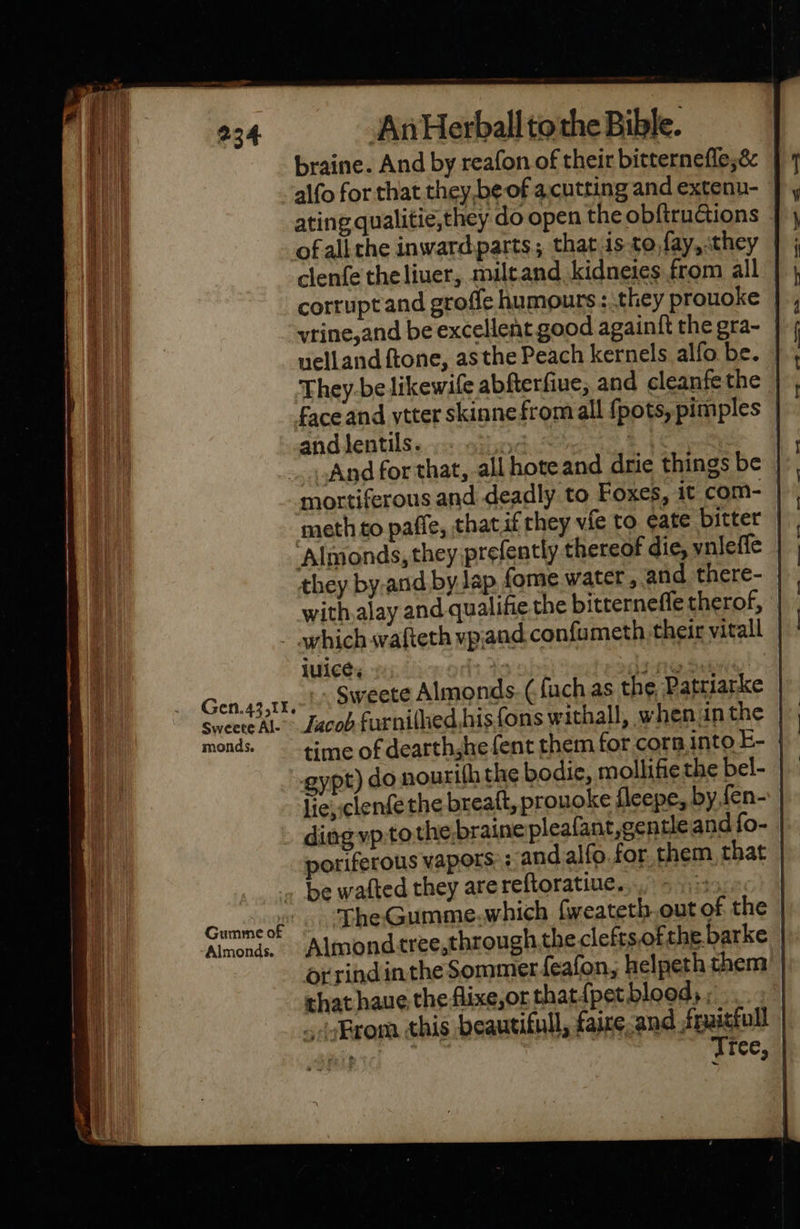 234 An Herball to the Bible.
braine. And by reaſon of their bitterneſſe,&
alſo for that they be of a cutting and extenu-
ating qualitie,they do open the obſtructions
of all the inward parts; that is to ſay, they
clenſe the liuer, milt and kidneies from all
corrupt and groſſe humours: they prouoke
vrine,and be excellent good againſt the gra-
uell and ſtone, as the Peach kernels alſo be.
They be likewiſe abſterſiue, and cleanſe the
face and vtter skinne from all ſpots, pimples
and lentils.
And for that, all hote and drie things be
mortiferous and deadly to Foxes, it com-
meth to paſſe, that if they vſe to eate bitter
Almonds, they preſently thereof die, vnleſſe
they by and by lap ſome water, and there-
with alay and qualifie the bitterneſſe therof,
which waſteth vp and conſumeth their vitall
iuice.
Gen.43,11.
Sweete Al-
monds.
Sweete Almonds (ſuch as the Patriarke
Jacob furniſhed his ſons withall, when in the
time of dearth,he ſent them for corn into E-
gypt) do nouriſh the bodie, mollifie the bel-
lie, clenſe the breaſt, prouoke ſleepe, by ſen-
ding vp to the braine pleaſant,gentle and ſo-
poriferous vapors: and alſo for them that
be waſted they are reſtoratiue.
Gumme of
Almonds.
The Gumme which ſweateth out of the
Almond tree,through the clefts of the barke
or rind in the Sommer ſeaſon, helpeth them
that haue the flixe,or that ſpet blood,
From this beautifull, faire and fruitfull
Tree,